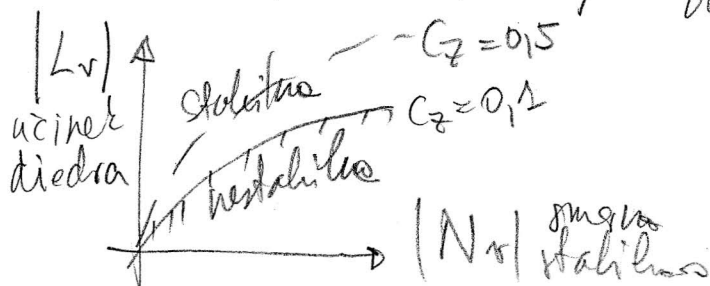 |Lv|
učinek
diedra
stabilno
Cz = 0,5
Cz = 0,1
nestabilno
|Nv| smerna
stabilnost